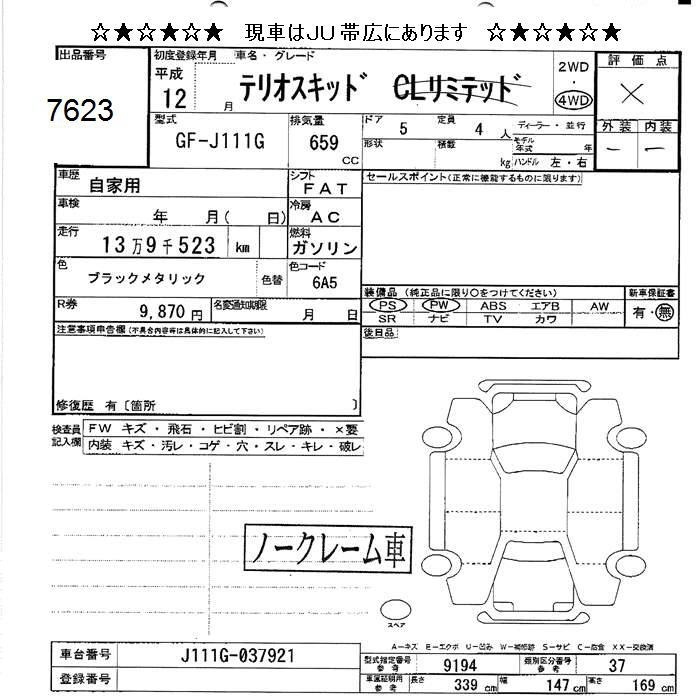 ☆★☆★☆★ 現車はJU帯広にあります ☆★☆★☆★
出品番号 初度登録年月 車名・グレード 2WD 評価点
7623 平成12月 テリオスキッド CLリミテッド 4WD ×
型式 排気量 ドア 5 定員 4人 ディーラー・並行 外装 内装
GF-J111G 659cc 形状 積載 kg モデル年式 年 ハンドル 左・右 ー ー
車歴 自家用 シフト FAT セールスポイント(正常に機能するものに限ります)
車検 年 月( 日) 冷房 AC
走行 13万9千523 km 燃料 ガソリン
色 ブラックメタリック 色替 色コード 6A5
装備品 (純正品に限り○をつけてください) 新車保証書
R券 9,870円 名変通知期限 月 日 PS PW ABS エアB AW 有・無
SR ナビ TV カワ
注意事項申告欄(不具合内容等は具体的に記入して下さい) 後日品
修復歴 有〔箇所 〕
検査員記入欄 FW キズ・飛石・ヒビ割・リペア跡・×要
内装 キズ・汚レ・コゲ・穴・スレ・キレ・破レ
ノークレーム車
スペア
A-キズ E-エクボ U-凹み W-補修跡 S-サビ C-腐食 XX-交換済
車台番号 J111G-037921 型式指定番号 参考 9194 類別区分番号 参考 37
登録番号 車庫証明用 参考 長さ 339cm 幅 147cm 高さ 169cm